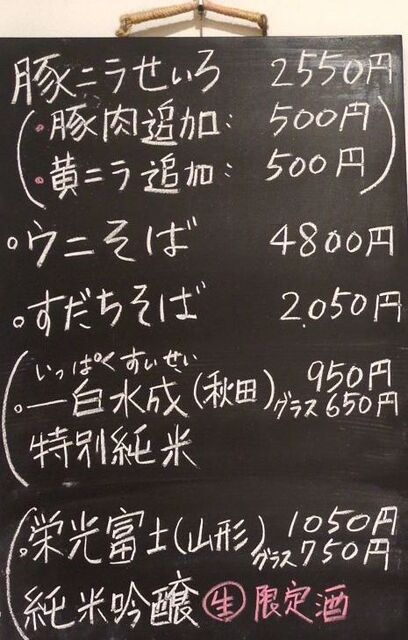 豚ニラせいろ 2550円
(・豚肉追加: 500円
・黄ニラ追加: 500円)
・ウニそば 4800円
・すだちそば 2.050円
いっぱくすいせい
(・一白水成(秋田) 950円
グラス 650円
特別純米
(・栄光富士(山形) 1050円
グラス 750円
純米吟醸 生 限定酒